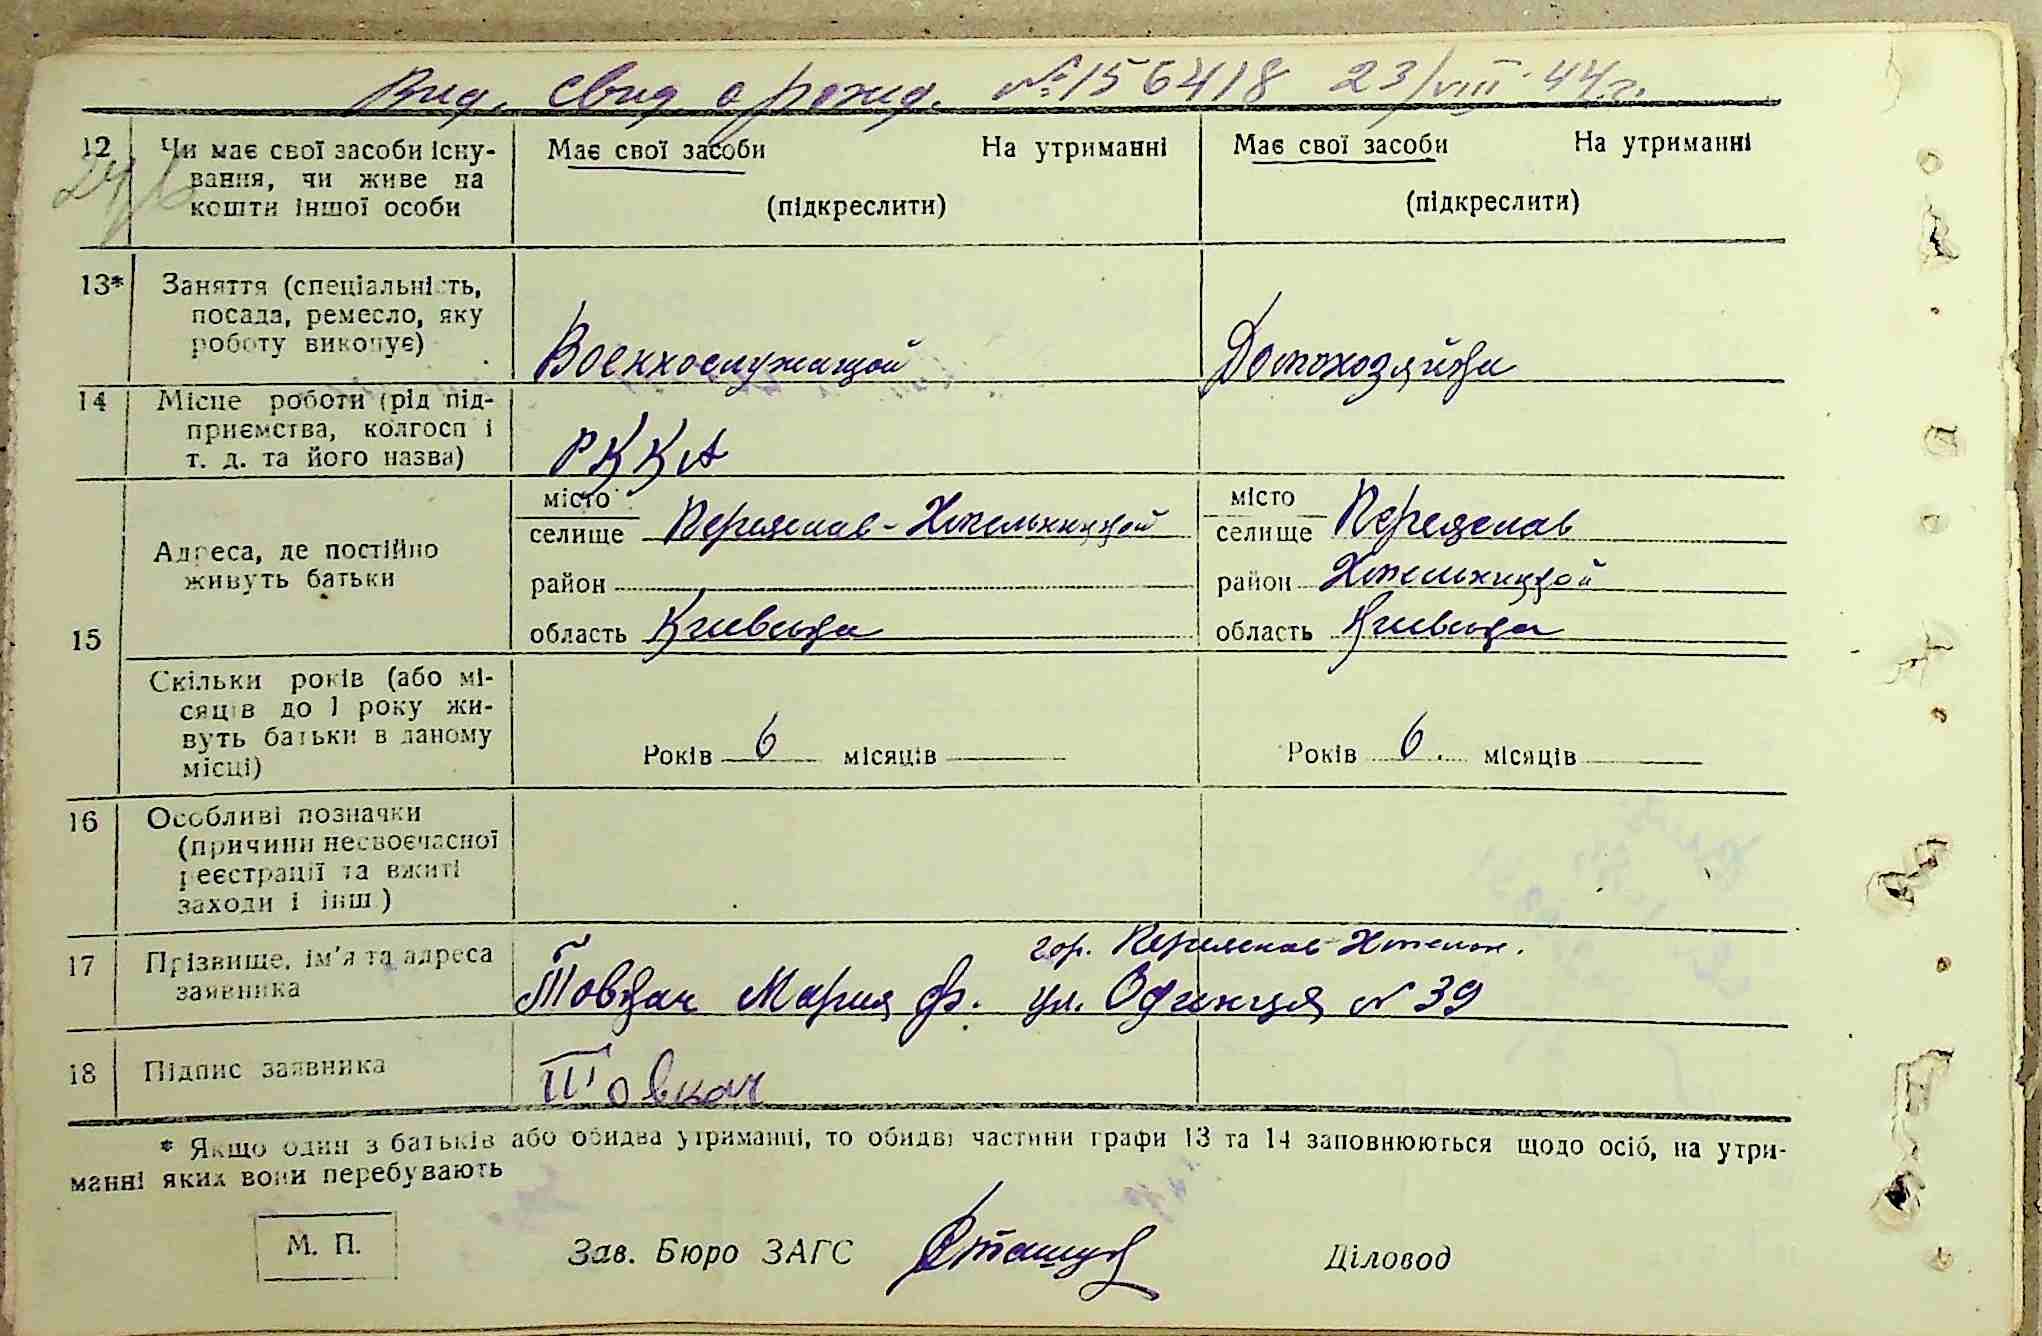 Вид. свид о рожд. № 156418 23/VIII 44 г.
12 Чи має свої засоби існу-
вання, чи живе на
кошти іншої особи
Має свої засоби На утриманні
(підкреслити)
Має свої засоби На утриманні
(підкреслити)
13* Заняття (спеціальність,
посада, ремесло, яку
роботу виконує)
Военнослужащой
Домохозяйка
14 Місце роботи (рід під-
приємства, колгосп і
т. д. та його назва)
РККА
15
Адреса, де постійно
живуть батьки
місто
селище Переяслав-Хмельницкой
район
область Киевская
місто
селище Переяслав
район Хмельницкой
область Киевская
Скільки років (або мі-
сяців до 1 року жи-
вуть батьки в даному
місці)
Років 6 місяців
Років 6 місяців
16 Особливі позначки
(причини несвоєчасної
реєстрації та вжиті
заходи і інш.)
17 Прізвище, ім'я та адреса
заявника
гор. Переяслав Хмельн.
Товкач Мария Ф. ул. Одинця № 39
18 Підпис заявника
Товкач
* Якщо один з батьків або обидва утриманці, то обидві частини графи 13 та 14 заповнюються щодо осіб, на утри-
манні яких вони перебувають
М. П.
Зав. Бюро ЗАГС
Діловод